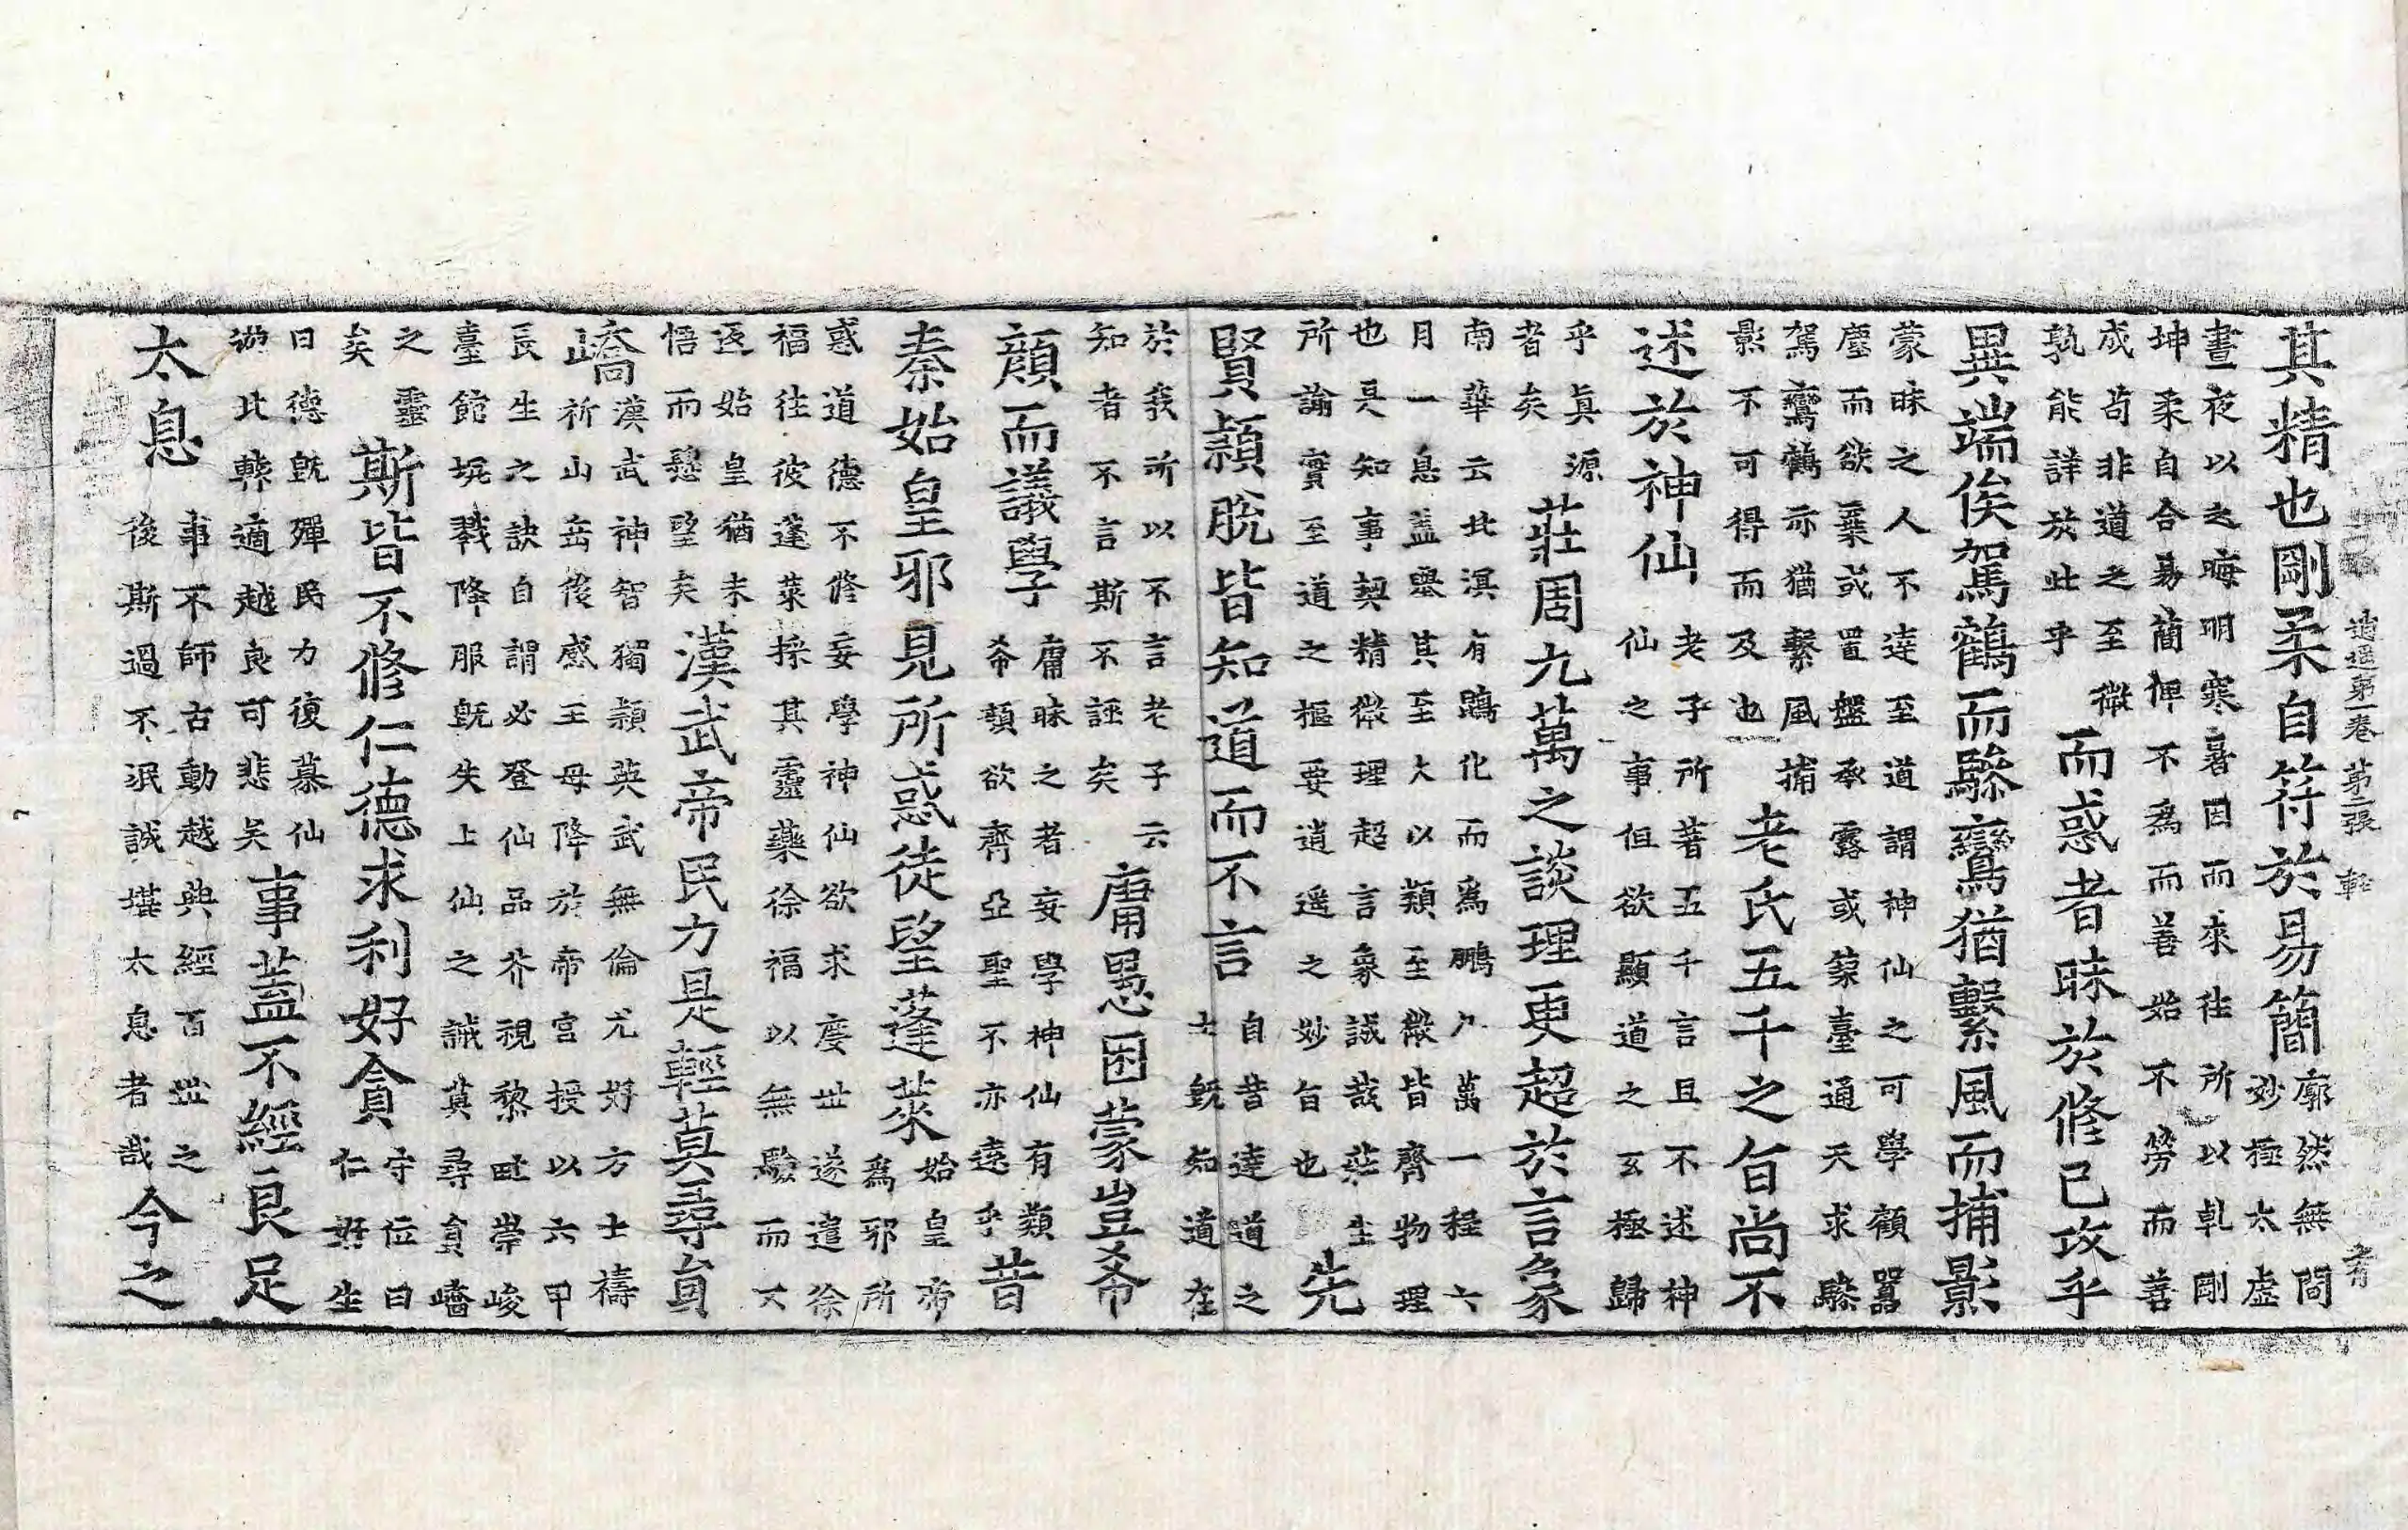 逍遥第一卷 第二張 輕
其精也剛柔自符於易簡
廓然無間
妙極太虛
晝夜以之晦明寒暑因而求往所以乹剛
坤柔自合易簡俾不為而善始不勞而善
成苟非道之至微
孰能詳於此乎
而惑者昧於修已攻乎
異端俟駕鶴而驂鸞猶繫風而捕影
蒙昧之人不達至道謂神仙之可學顧嚣
塵而欲棄或置盤承露或築臺通天求驂
駕鸞鶴亦猶繫風捕
影不可得而及也
老氏五千之旨尚不
述於神仙
老子所著五千言且不述神
仙之事但欲顯道之玄極歸
乎真源
者矣
莊周九萬之談理更超於言象
南華云北溟有鵾化而為鵬九萬一程六
月一息盖舉其至大以類至微皆齊物理
也是知事契精微理超言象誠哉莊生
所論實至道之樞要逍遥之妙旨也
先
賢穎脫皆知道而不言
自昔達道之
士既知道在
於我所以不言老子云
知者不言斯不誣矣
庸愚困蒙豈希
顏而議學
庸昧之者妄學神仙有類
希顏欲齊亞聖不亦遠乎
昔
秦始皇邪見所惑徒望蓬萊
始皇帝
為邪所
惑道德不修妄學神仙欲求度世遂遣徐
福往彼蓬萊採其靈藥徐福以無驗而不
返始皇猶未
悟而懸望矣
漢武帝民力是輕莫尋員
嶠
漢武神智獨穎英武無倫尤好方士禱
祈山岳後感王母降於帝宮授以六甲
長生之訣自謂必登仙品芥視黎甿崇峻
臺館戮降服旣失上仙之誡莫尋員嶠
之靈
矣
斯皆不修仁德求利好貪
守位曰
仁好生
曰德旣殫民力復慕仙
遊北轅適越良可悲矣
事蓋不經良足
太息
事不師古動越典經百世之
後斯過不泯誠堪太息者哉
今之